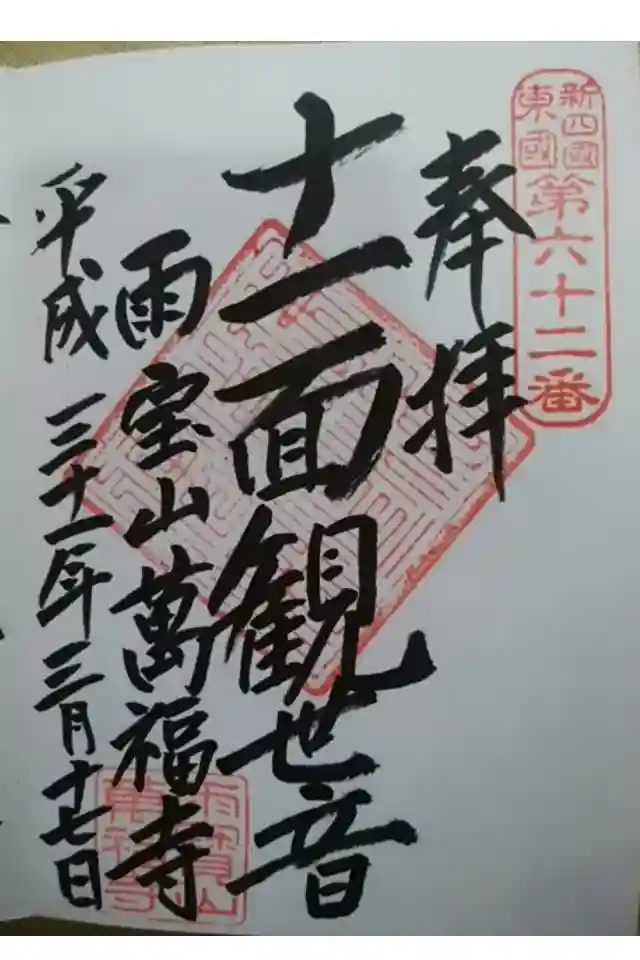 新四國
東國
第六十二番
奉拝
十一面観世音
雨宝山萬福寺
平成三十一年三月十七日
雨寳山
萬福寺